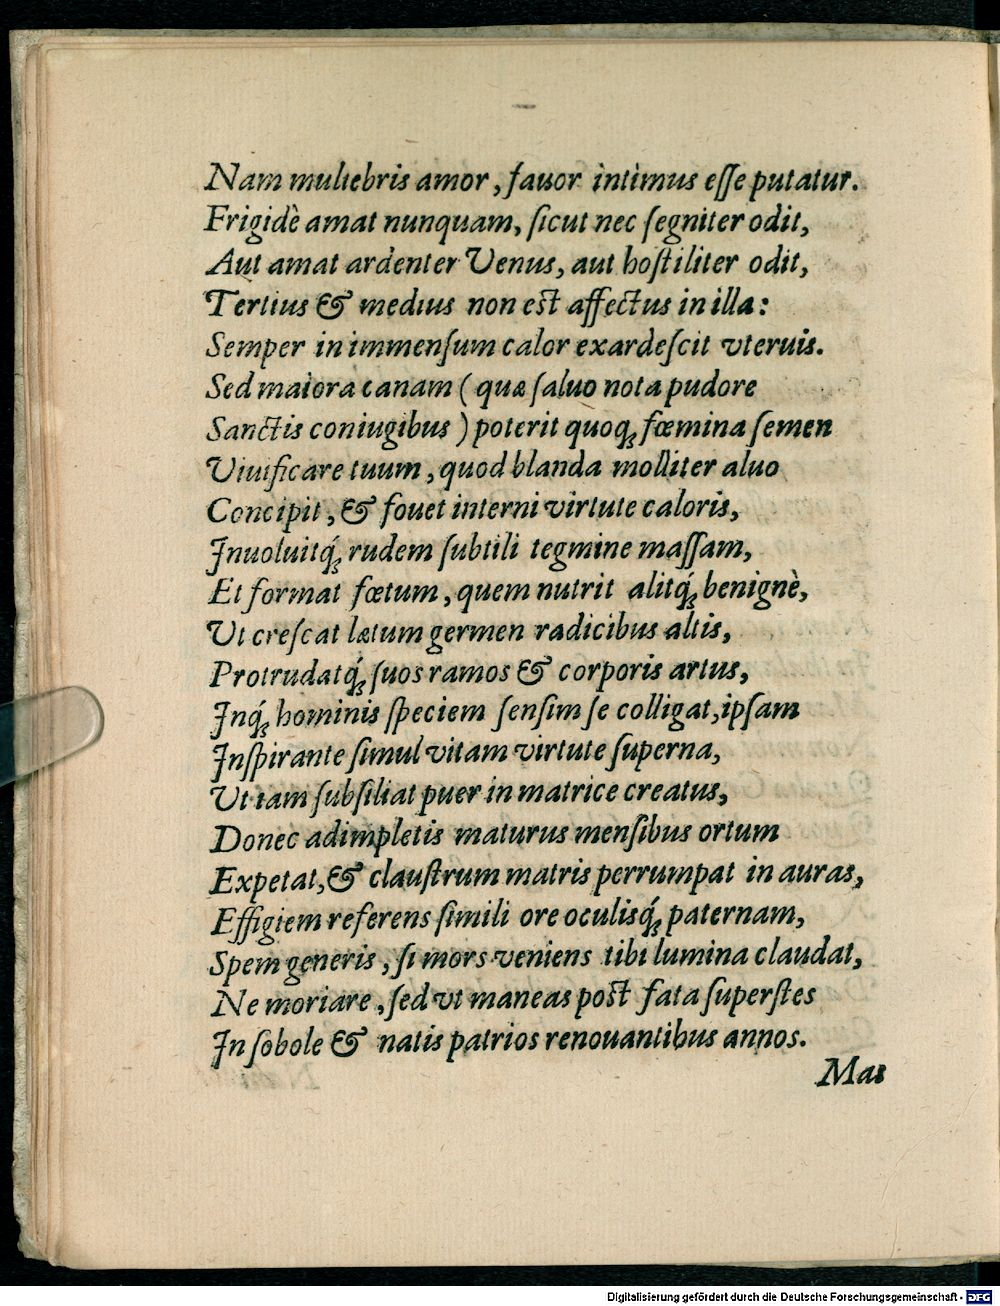 Nam muliebris amor, fauor intimus eſſe putatur.
Frigidè amat nunquam, ſicut nec ſegniter odit,
Aut amat ardenter Venus, aut hoſtiliter odit,
Tertius & medius non est affectus in illa:
Semper in immenſum calor exardeſcit vteruis.
Sed maiora canam (quæ ſaluo nota pudore
Sanctis coniugibus) poterit quoq; fœmina ſemen
Viuificare tuum, quod blanda molliter aluo
Concipit, & fouet interni virtute caloris,
Inuoluitq́; rudem ſubtili tegmine maſſam,
Et format fœtum, quem nutrit alitq́; benignè,
Ut creſcat lætum germen radicibus altis,
Protrudatq́; ſuos ramos & corporis artus,
Inq́; hominis ſpeciem ſenſim ſe colligat, ipſam
Inſpirante ſimul vitam virtute ſuperna,
Ut iam ſubſiliat puer in matrice creatus,
Donec adimpletis maturus menſibus ortum
Expetat, & clauſtrum matris perrumpat in auras,
Effigiem referens ſimili ore oculisq́; paternam,
Spem generis, ſi mors veniens tibi lumina claudat,
Ne moriare, ſed vt maneas post fata ſuperſtes
In ſobole & natis patrios renouantibus annos.
Mai
Digitalisierung gefördert durch die Deutsche Forschungsgemeinschaft - DFG